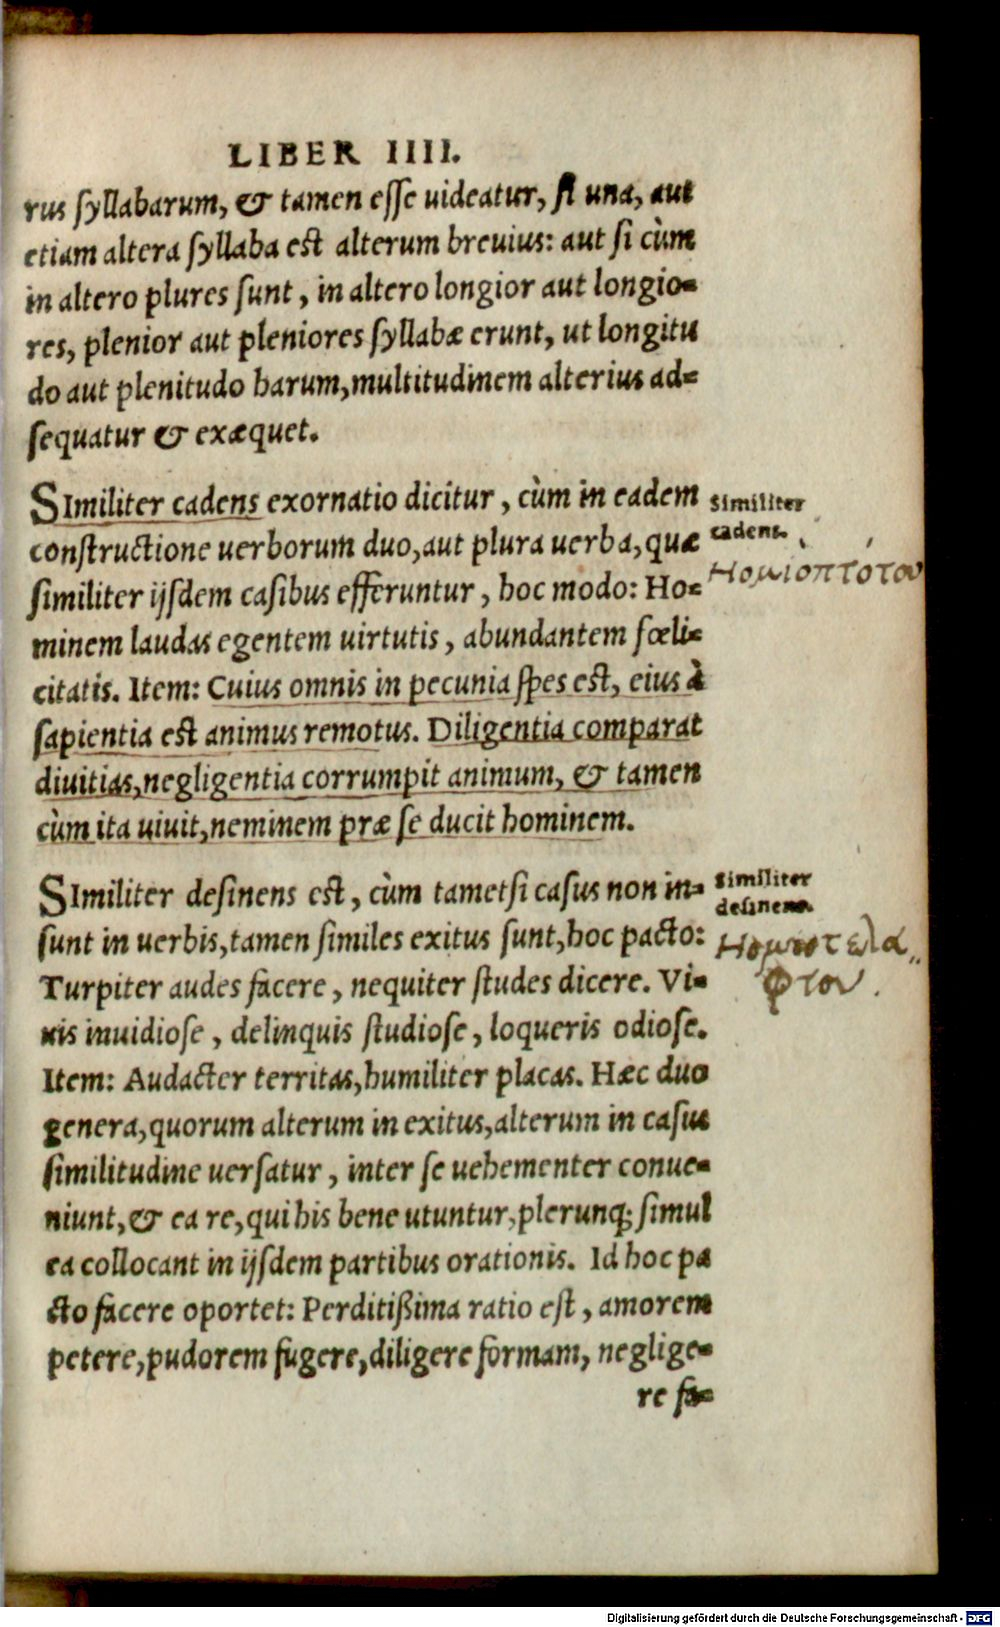 LIBER IIII.
rus syllabarum, & tamen esse uideatur, si una, aut
etiam altera syllaba est alterum breuius: aut si cùm
in altero plures sunt, in altero longior aut longio-
res, plenior aut pleniores syllabæ erunt, ut longitu
do aut plenitudo harum, multitudinem alterius ad-
sequatur & exæquet.
SImiliter cadens exornatio dicitur, cùm in eadem
constructione uerborum duo, aut plura uerba, quæ
similiter ijsdem casibus efferuntur, hoc modo: Ho-
minem laudas egentem uirtutis, abundantem fœli-
citatis. Item: Cuius omnis in pecunia spes est, eius à
sapientia est animus remotus. Diligentia comparat
diuitias, negligentia corrumpit animum, & tamen
cùm ita uiuit, neminem præ se ducit hominem.
Similiter
cadens.
Ηομιοπτοτον
SImiliter desinens est, cùm tametsi casus non in-
sunt in uerbis, tamen similes exitus sunt, hoc pacto:
Turpiter audes facere, nequiter studes dicere. Vi-
uis inuidiose, delinquis studiose, loqueris odiose.
Item: Audacter territas, humiliter placas. Hæc duo
genera, quorum alterum in exitus, alterum in casus
similitudine uersatur, inter se uehementer conue-
niunt, & ea re, qui his bene utuntur, plerunq; simul
ea collocant in ijsdem partibus orationis. Id hoc pa
cto facere oportet: Perditißima ratio est, amorem
petere, pudorem fugere, diligere formam, neglige-
re fa-
Similiter
desinens.
Digitalisierung gefördert durch die Deutsche Forschungsgemeinschaft - DFG